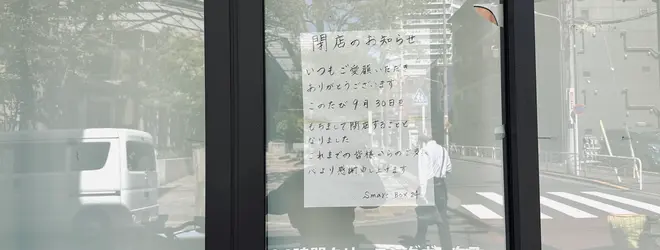 閉店のお知らせ
いつもご愛顧いただき
ありがとうございます
このたび 9月30日を
もちまして閉店することと
なりました
これまでの皆様からのご支
心より感謝申し上げます
Smart Box 24